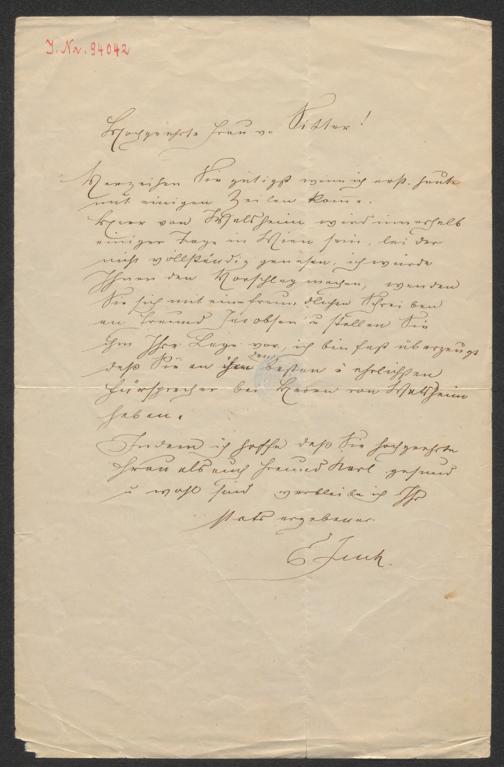 J. Nr. 94042
Hochgeehrte Frau v. Sitter!
Verzeihen Sie gütigst wenn ich erst heute
mit einigen Zeilen kome.
Herr von Walsheim wird innerhalb
einiger Tage in Wien sein, lei der
nicht vollständig genesen, ich würde
Ihnen den Vorschlag machen, wenden
Sie sich mit eine freun dlichen Schrei ben
an Freund Jacobsen u stellen Sie
ihm Ihre Lage vor, ich bin fast überzeugt
daß Sie an ihm den besten u ehrlichsten
Fürsprecher bei Herrn von Walsheim
haben.
Indem ich hoffe daß Sie hochgeehrte
Frau als auch Freund Karl gesund
u wohl sind verbleibe ich Ihr
stets ergebener